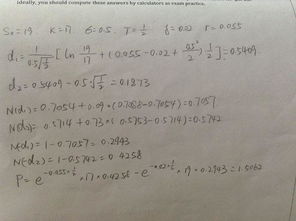 ideally, you should compute these answers by calculators as exam practice.
S₀ = 19 K = 17 σ = 0.5 T = 1/2 δ = 0.02 r = 0.055
d₁ = 1/(0.5√(1/2)) [ ln 19/17 + (0.055 - 0.02 + 0.5²/2) 1/2 ] = 0.5409
d₂ = 0.5409 - 0.5√(1/2) = 0.1873
N(d₁) = 0.7054 + 0.09 × (0.7088 - 0.7054) = 0.7057
N(d₂) = 0.5714 + 0.73 × (0.5753 - 0.5714) = 0.5742
N(-d₁) = 1 - 0.7057 = 0.2943
N(-d₂) = 1 - 0.5742 = 0.4258
P = e^(-0.055×1/2) × 17 × 0.4258 - e^(-0.02×1/2) × 19 × 0.2943 = 1.5062